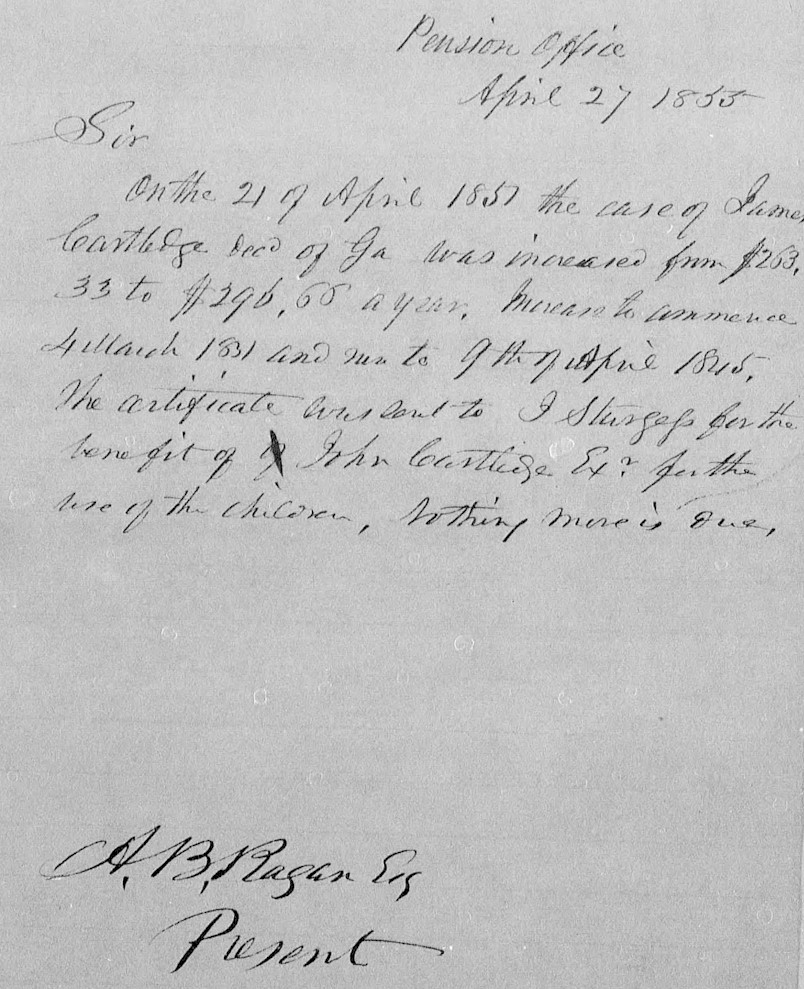 Pension Office
April 27 1855
Sir
On the 21 of April 1851 the case of James
Cartledge decd of Ga was increased from $263,
33 to $296,66 a year. Increase to commence
4 March 1831 and run to 9th of April 1845.
The certificate was sent to J Sturgess for the
benefit of John Cartledge Exr for the
use of the children, Nothing more is due,
A. B. Ragan Esq
Present